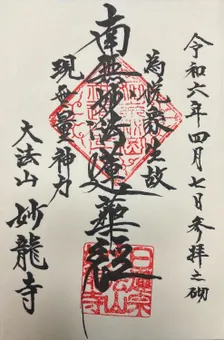 令和六年四月七日参拝之砌
為悦衆生故
南無妙法蓮華経
現無量神力
大法山 妙龍寺